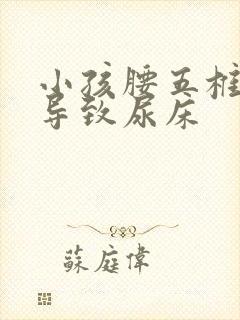 小孩腰五椎
导致尿床
蘇庭偉